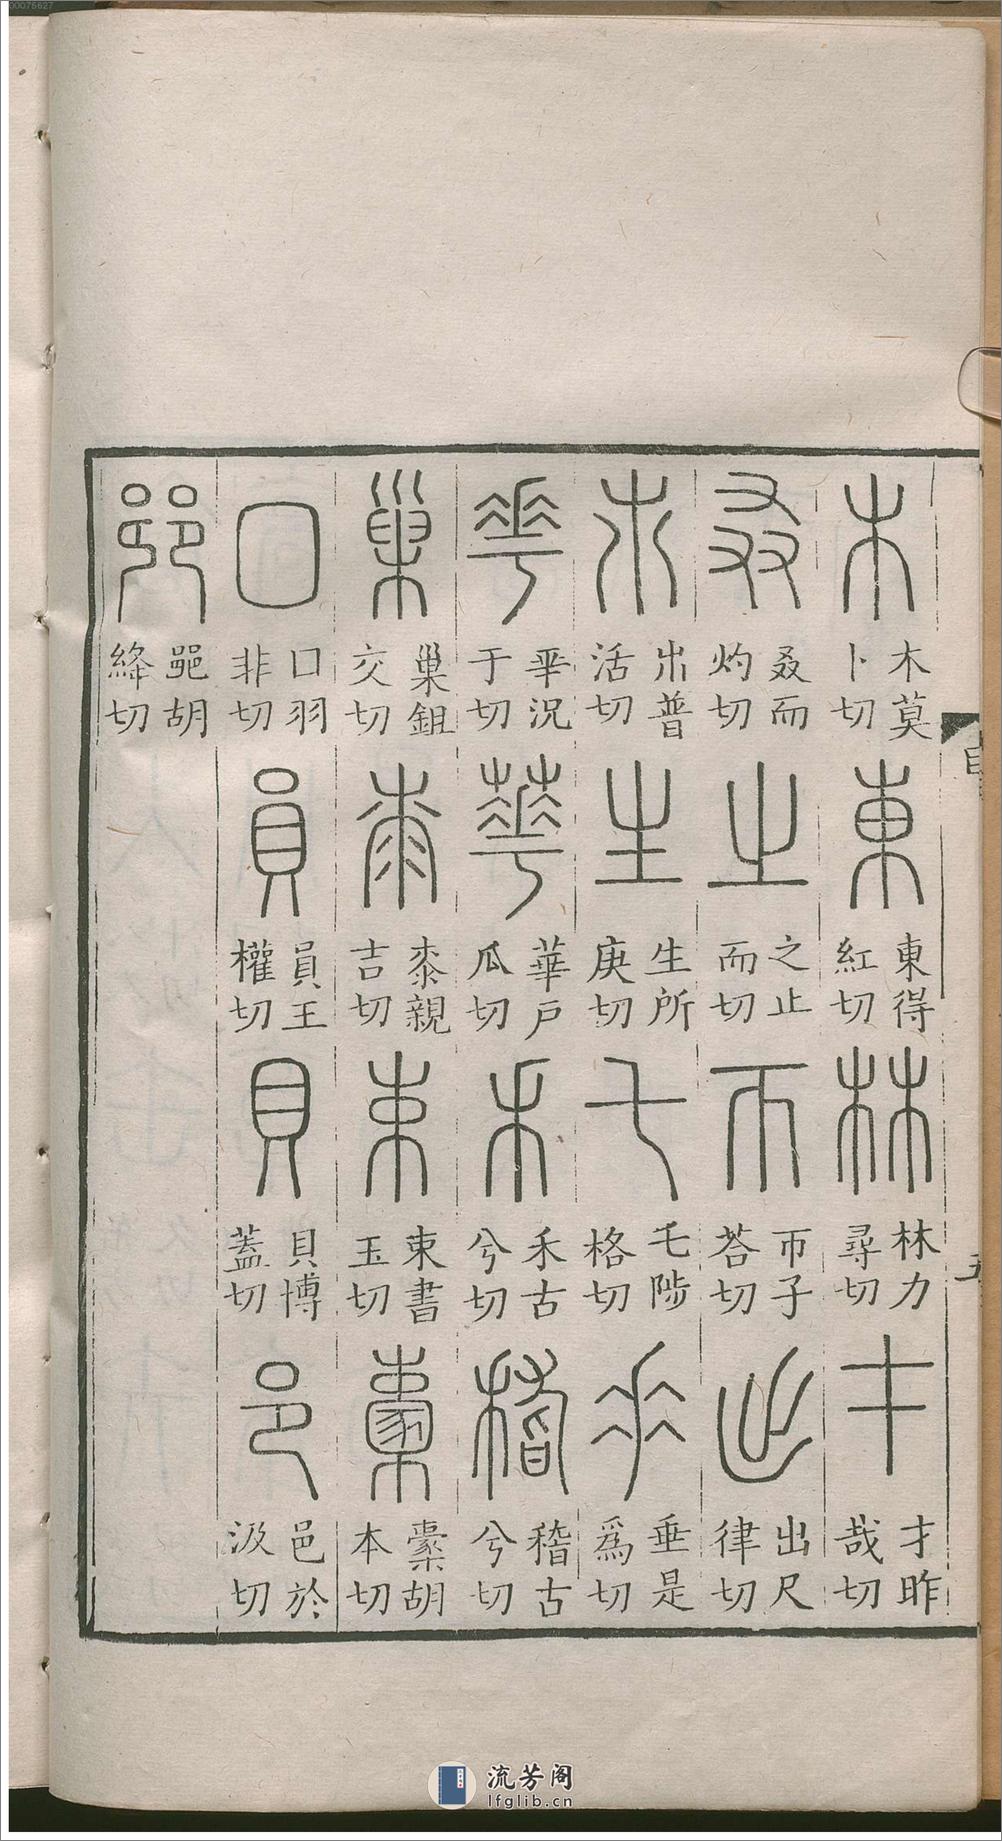 00075627
木 木莫卜切 東 東得紅切 林 林力尋切 才 才昨哉切
叒 叒而灼切 之 之止而切 帀 帀子荅切 出 出尺律切
𣎵 𣎵普活切 生 生所庚切 乇 乇陟格切 𠂹 垂是爲切
𠌶 𠌶況于切 華 華戶瓜切 𥝌 禾古兮切 稽 稽古兮切
巢 巢鉏交切 桼 桼親吉切 束 束書玉切 㯻 㯻胡本切
囗 口羽非切 員 員王權切 貝 貝博蓋切 邑 邑於汲切
𨛜 𨛜胡絳切
目
五
流芳阁
lfglib.cn